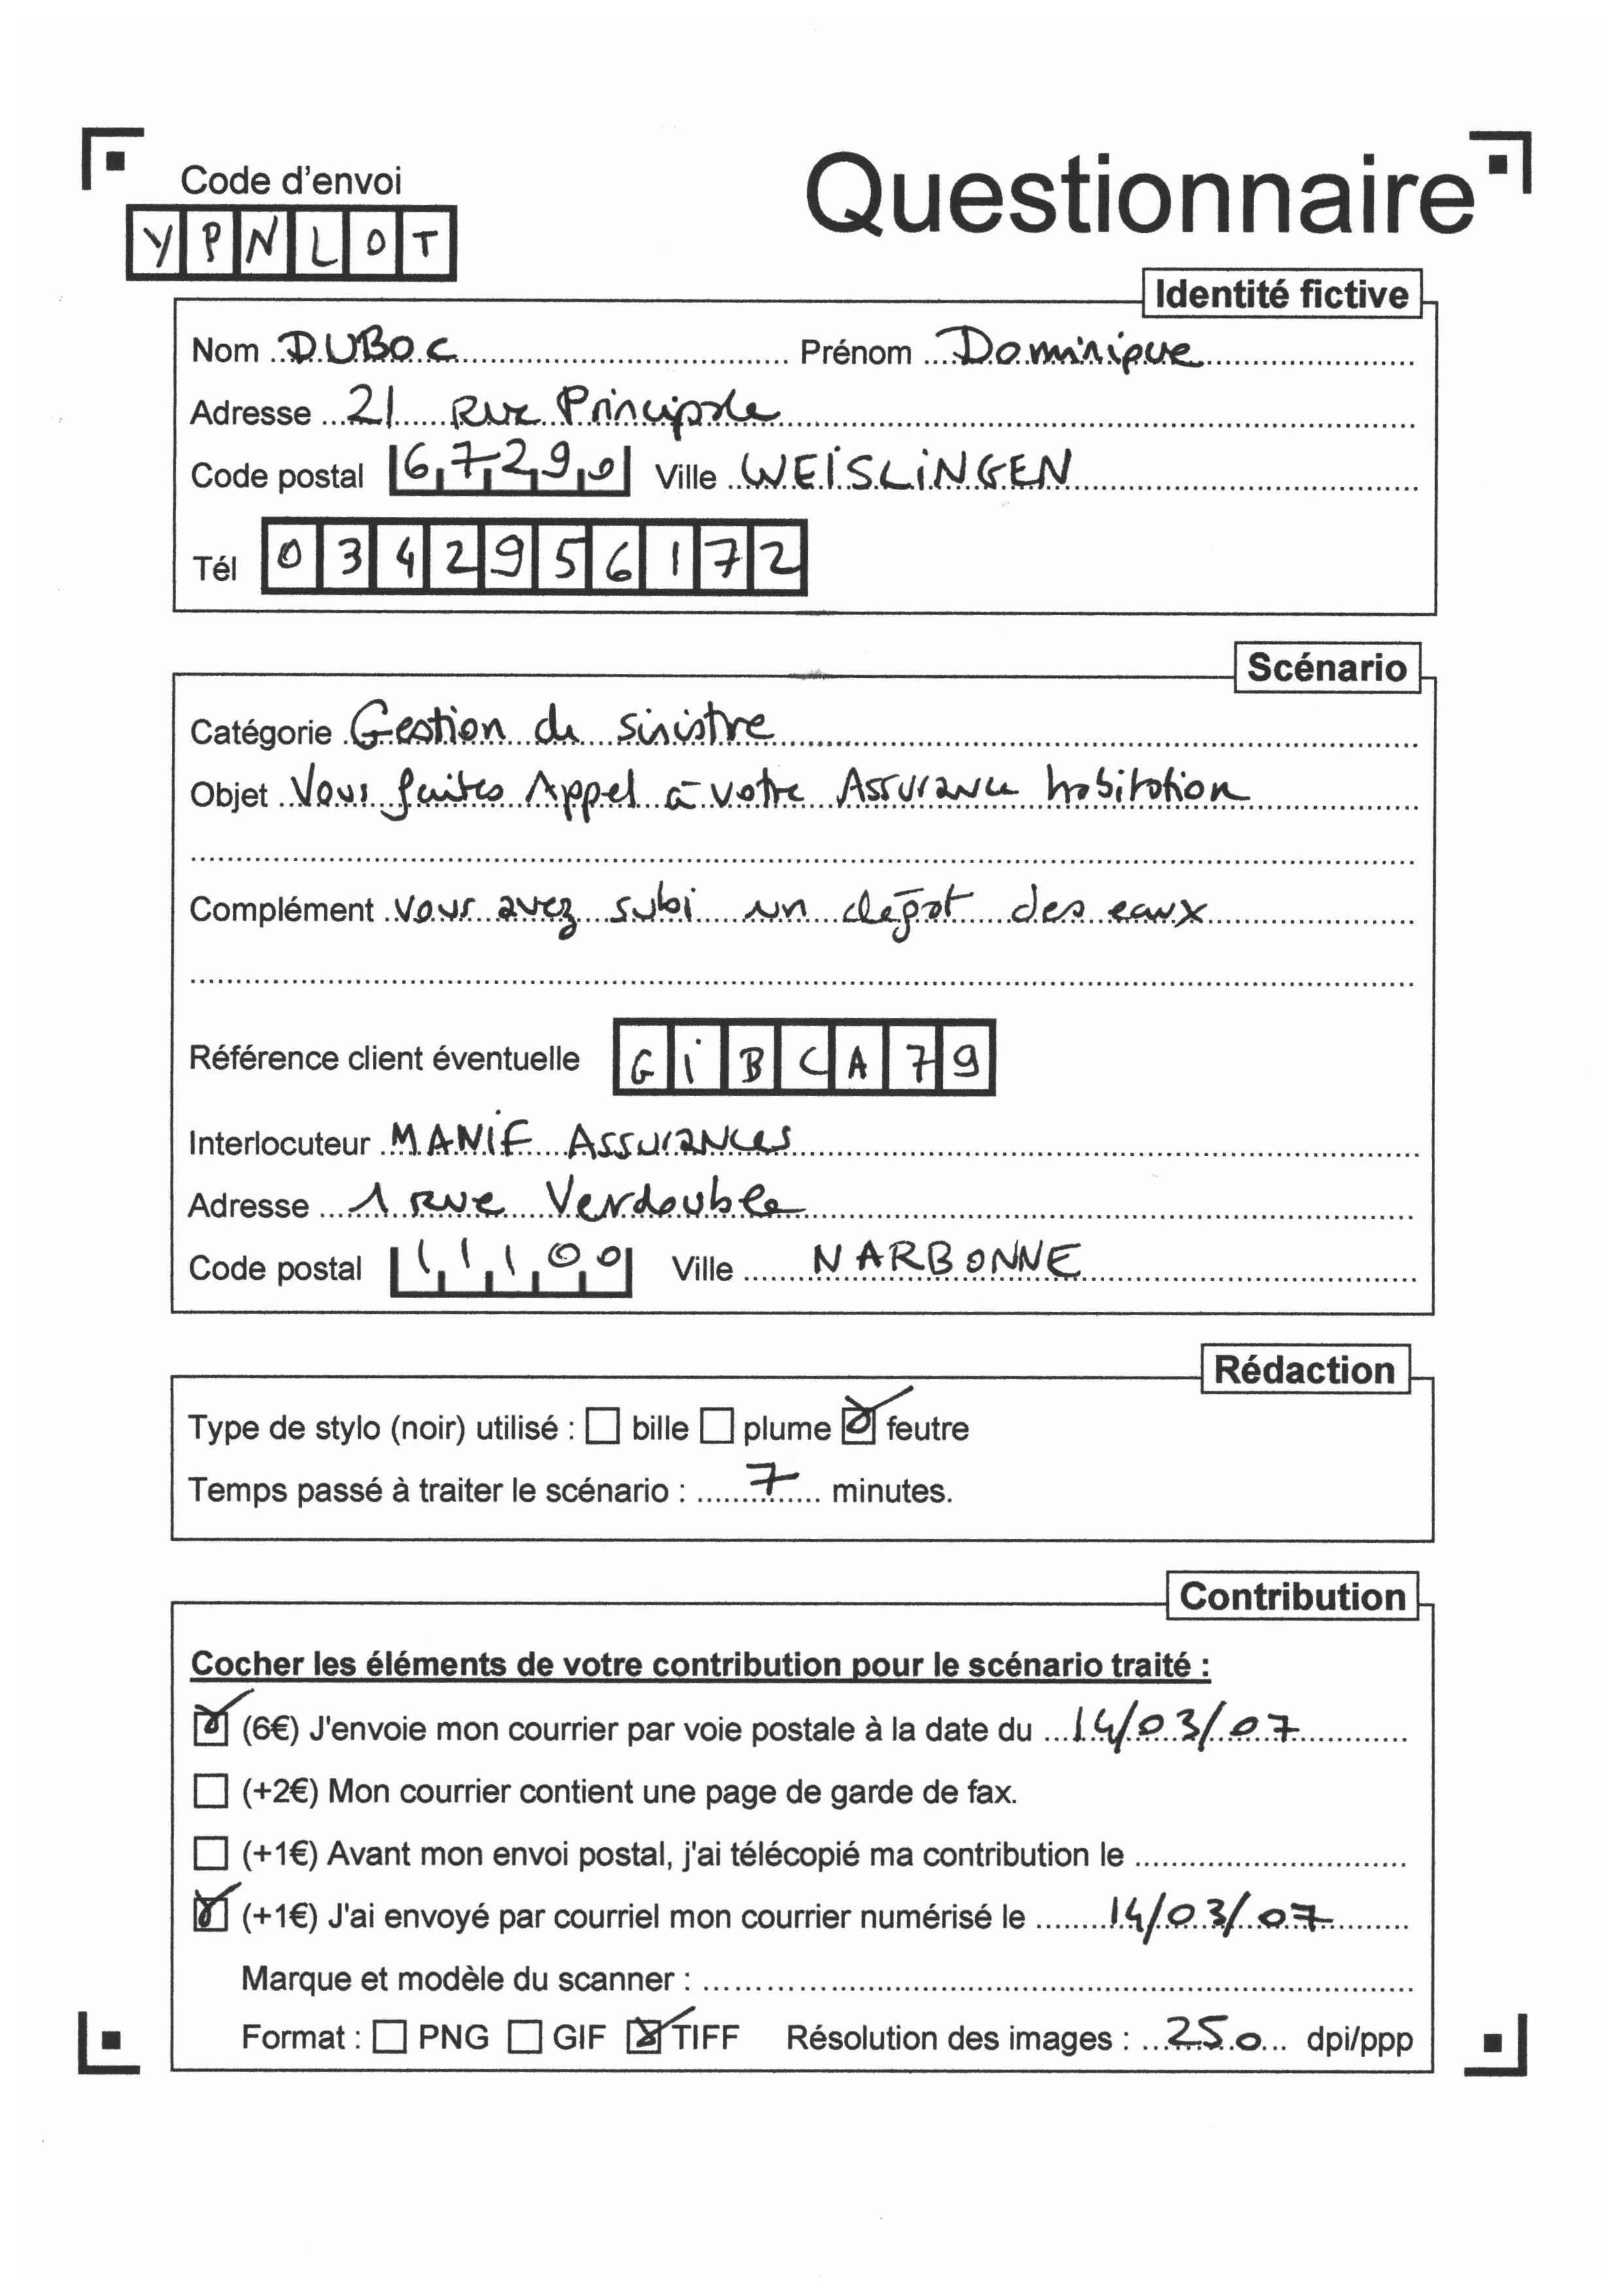 Code d'envoi
Questionnaire
YPNLOT
Identité fictive
Nom DUBOC Prénom Dominique
Adresse 21 Rue Principale
Code postal 67290 Ville WEISLINGEN
Tél 0342956172
Scénario
Catégorie Gestion de sinistre
Objet Vous faites Appel à votre Assurance habitation
Complément vous avez subi un dégât des eaux
Référence client éventuelle GIBCA79
Interlocuteur MANIF Assurances
Adresse 1 rue Verdouble
Code postal 11100 Ville NARBONNE
Rédaction
Type de stylo (noir) utilisé : ☐ bille ☐ plume ☑ feutre
Temps passé à traiter le scénario : 7 minutes.
Contribution
Cocher les éléments de votre contribution pour le scénario traité :
☑ (6€) J'envoie mon courrier par voie postale à la date du 14/03/07
☐ (+2€) Mon courrier contient une page de garde de fax.
☐ (+1€) Avant mon envoi postal, j'ai télécopié ma contribution le
☑ (+1€) J'ai envoyé par courriel mon courrier numérisé le 14/03/07
Marque et modèle du scanner :
Format : ☐ PNG ☐ GIF ☑ TIFF Résolution des images : 250 dpi/ppp